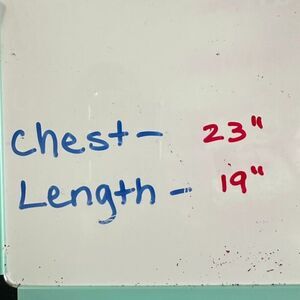 Chest- 23"
Length - 19"